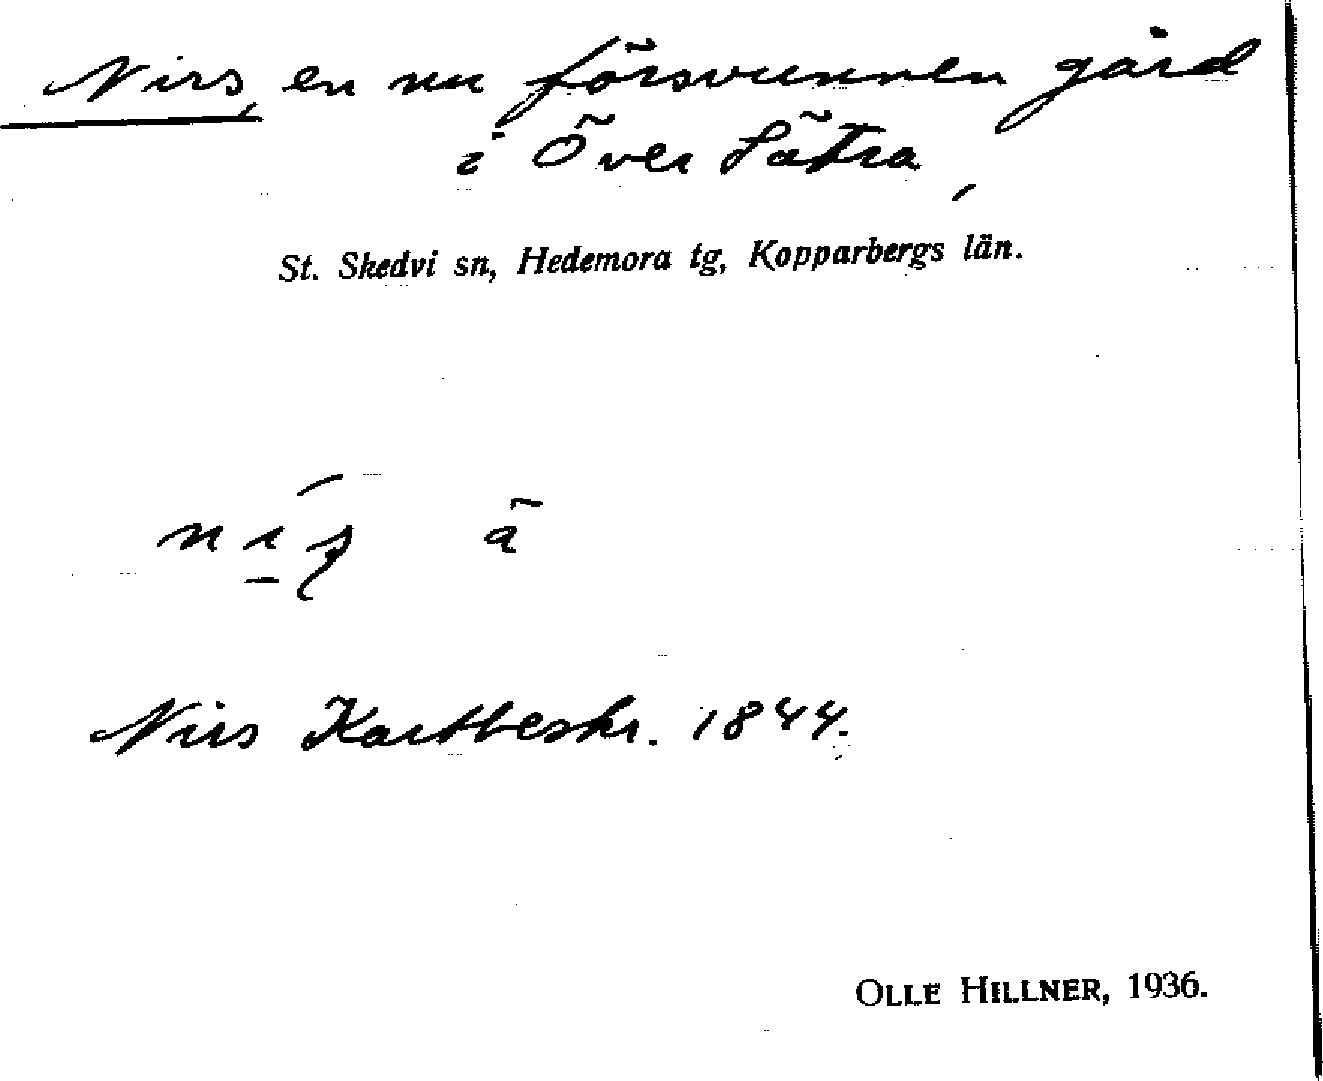 Nirs, en nu försvunnen gård
i Över Sätra,
St. Skedvi sn, Hedemora tg, Kopparbergs län.
Nirs Kartbeskr. 1844.
OLLE HILLNER, 1936.